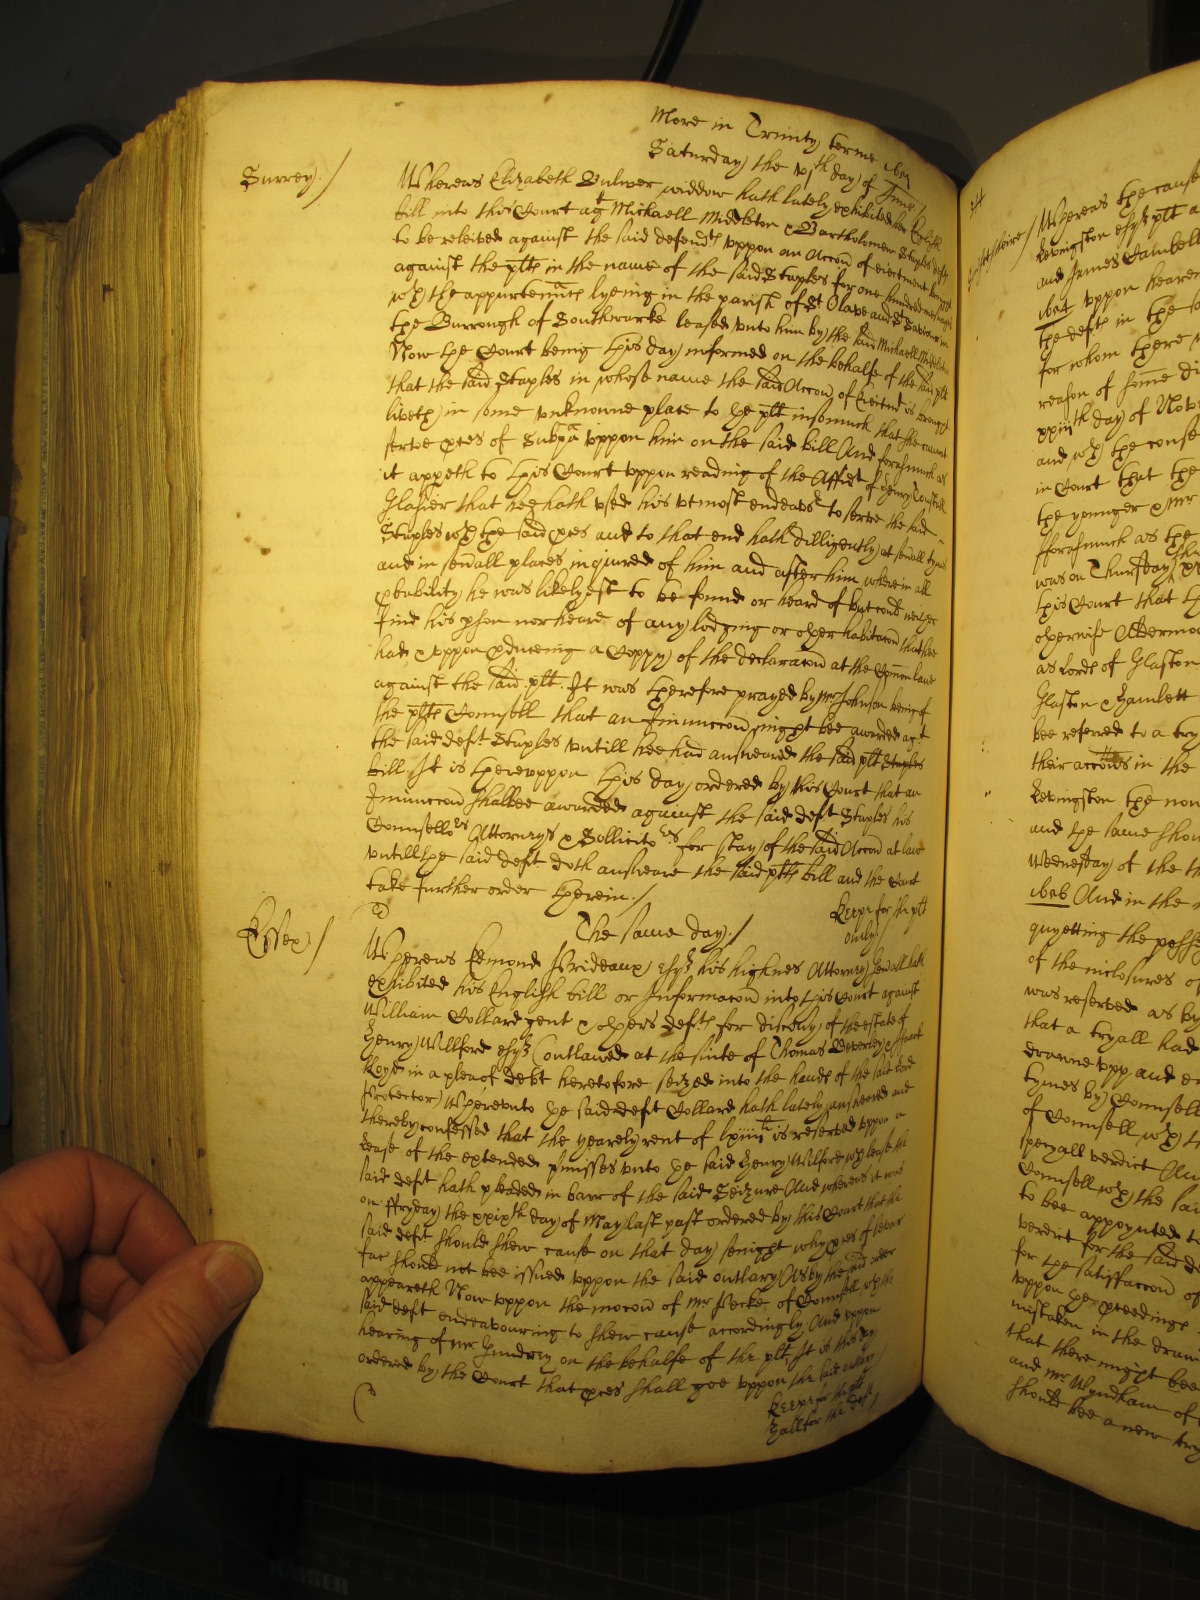 More in Trinity terme 1657
Saturday the vjth day of June /
Surrey. /
Whereas Elizabeth Bulmer widdow hath lately exhibited her English
bill into this Court agt Michaell Middleton & Bartholomew Staples defts
to be releived against the said defendts uppon an Accon of eiectment brought
against the plte in the name of the said Staples for one hundred messuages
wth the appurtennces lyeing in the parish of St Olave and St Saviour in
the Burrough of Southwarke leased unto him by the said Michaell Middleton
Now the Court being this day informed on the behalfe of the said plt
that the said Staples in whose name the said Accon of Eiectmt is brought
liveth in some unknowne place to the plt insomuch that she cannot
serve pces of Subpa uppon him on the said bill And forasmuch as
it appeth to this Court uppon reading of the Affidt of Henry
Glasier that hee hath used his utmost endeavr to serve the said
Staples wth the said pces and to that end hath dilligently at sevall tymes
and in sevall places inquired of him and after him where in all
pbability he was likelyest to be found or heard of but could neither
find his pson nor heare of any lodging or other habitacon that hee
had uppon pduceing a Coppy of the declaracon at the Comon lawe
against the said plt. It was therefore prayed by mr Johnson being of
the plts Councell that an Iniunccon might bee awarded agt
the said deft Staples untill hee had answeared the said plt Staples
bill It is thereuppon this day ordered by this Court that an
Iniunccon shalbee awarded against the said deft Staples his
Counsellors Attorneys & Sollicitors for stay of the said Accon at law
untill the said deft doth answeare the said plts bill and the Court
take further order therein. /
Keepe for the plt
only
Essex /
The same day. /
Whereas Edmond Prideaux esqz his highnes Attorney Genall hath
exhibited his English bill or Informacon into this Court against
William Collard gent & others defts for discovy of the estate of
Henry Willford esqz (outlawed at the suite of Thomas Beverley &
Keys in a plea of debt heretofore seized into the hands of the said Lord
Protector) Whereunto the said deft Collard hath lately answered and
thereby confessed that the yearely rent of lxiiijli is reserved uppon a
Lease of the extended pmisses unto the said Henry Wilford wch lease the
said deft hath pleaded in barr of the said Seizure And whereas it was
on ffryday the xxixth day of May last past ordered by this Court that the
said deft should shew cause on that day senight why pces of levar
fac should not bee issued uppon the said outlary As by the said order
appeareth Now uppon the mocon of mr Pecke of Counsell wth the
said deft endeavouring to shew cause accordingly And uppon
hearing of mr Hendrey on the behalfe of the plt, It is this day
ordered by the Court that pces shall goe uppon the said outlary /
Keepe for the plt
Hall for the deft /
344
Whereas the cause
Kevington esqz plt a
and James Cambell
1654 uppon hearein
the defts in the
for whom there w
reason of some di
xxiijth day of Nov
and wth the conse
in Court that the
the younger & mr
fforasmuch as the
was on Thursday
this Court that th
otherwise Abermo
as Lords of Glaston
Glaston Hamlett
bee referred to a try
their accons in the
Kevington the now
and the same shou
Wednesday of the th
1656 And in the
quyetting the posse
of the inclosures o
was reserved as by
that a tryall had
drawne upp and e
tymes by Counsell
of Counsell wth t
speciall verdict An
Counsell wth the sai
to bee appoynted to
verdict for the said de
for the satisfaccon of
uppon the pceedings
mistaken in the draw
that there might bee
and mr Wyndham of
should bee a new try